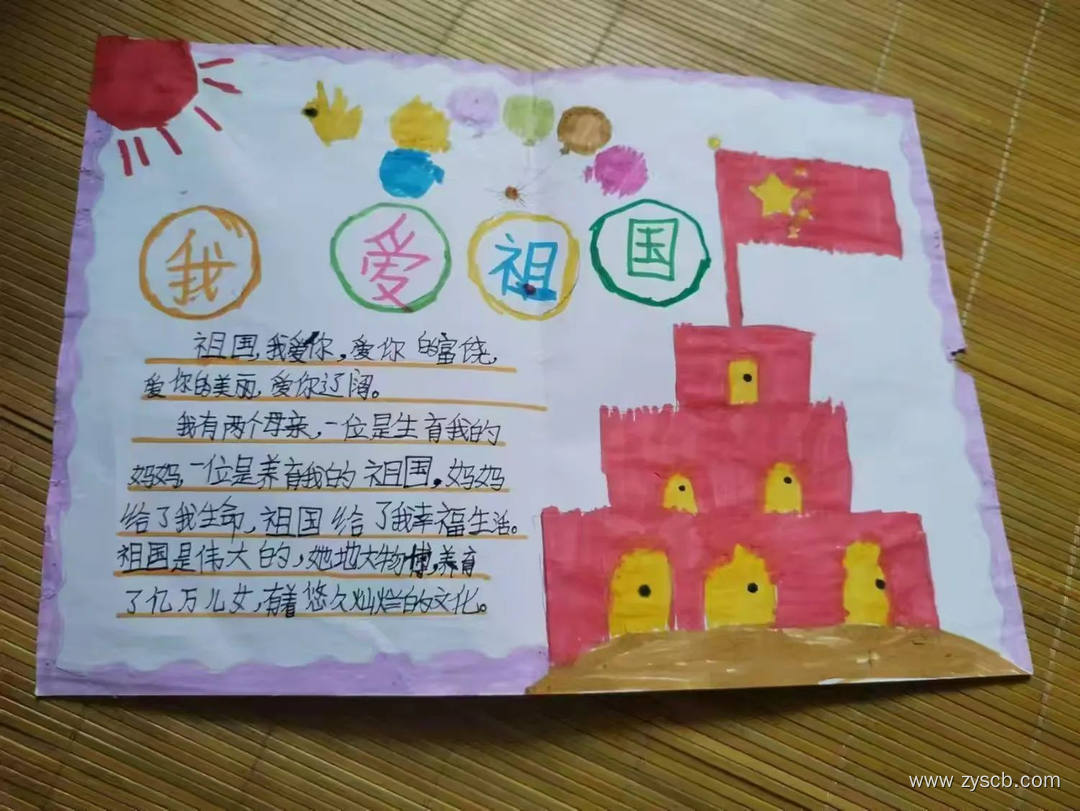 我爱祖国
祖国,我爱你,爱你的富饶,
爱你的美丽,爱你辽阔。
我有两个母亲,一位是生育我的
妈妈,一位是养育我的祖国,妈妈
给了我生命,祖国给了我幸福生活。
祖国是伟大的,她地大物博,养育
了亿万儿女,有着悠久灿烂的文化。
www.zyscb.com